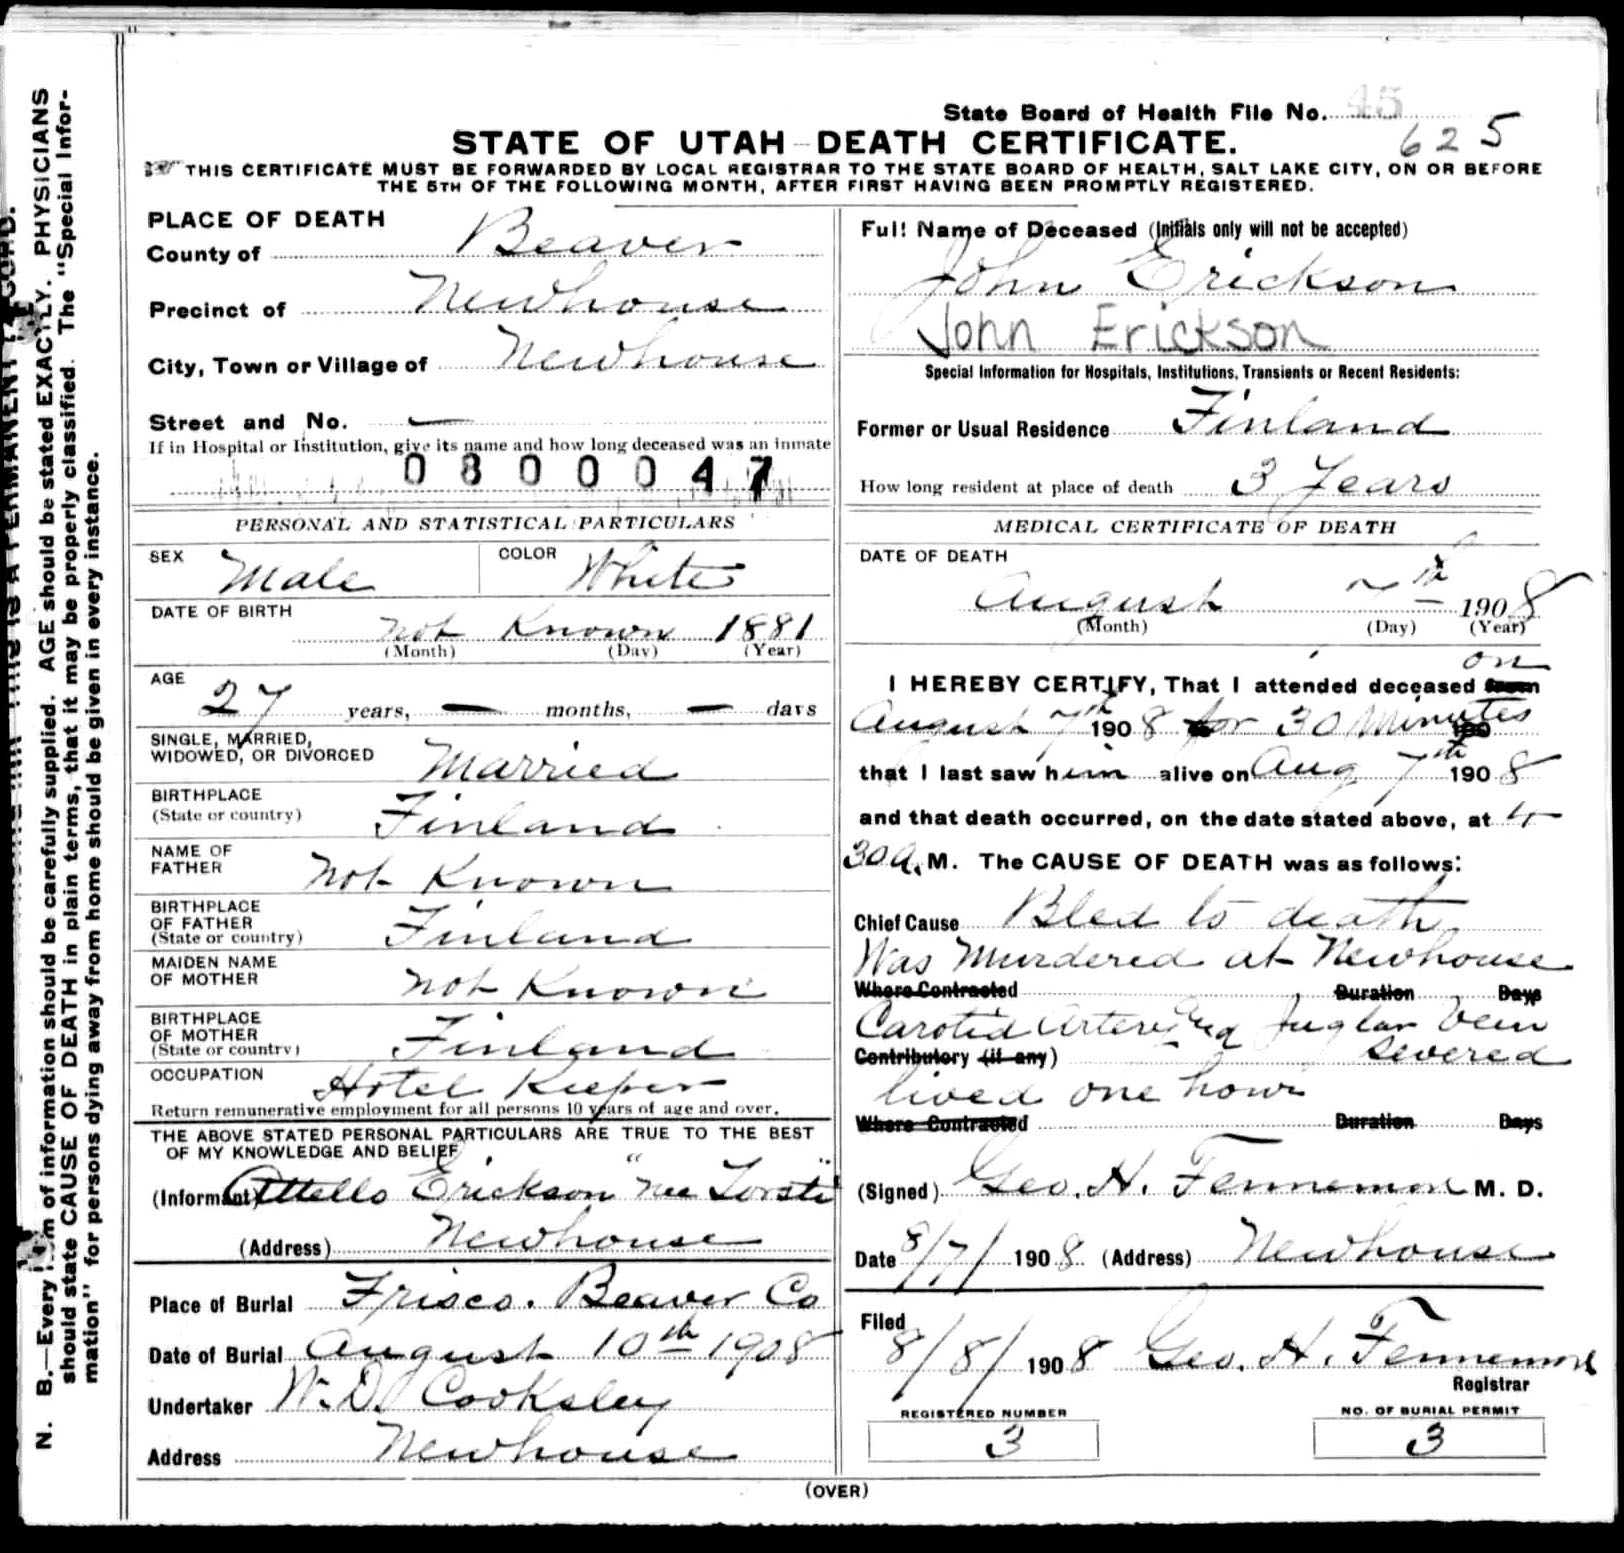 State Board of Health File No. 45
625
STATE OF UTAH—DEATH CERTIFICATE.
THIS CERTIFICATE MUST BE FORWARDED BY LOCAL REGISTRAR TO THE STATE BOARD OF HEALTH, SALT LAKE CITY, ON OR BEFORE
THE 5TH OF THE FOLLOWING MONTH, AFTER FIRST HAVING BEEN PROMPTLY REGISTERED.
PLACE OF DEATH
County of Beaver
Precinct of Newhouse
City, Town or Village of Newhouse
Street and No. —
If in Hospital or Institution, give its name and how long deceased was an inmate
0800047
PERSONAL AND STATISTICAL PARTICULARS
SEX Male COLOR White
DATE OF BIRTH
not Known 1881
(Month) (Day) (Year)
AGE
27 years, — months, — days
SINGLE, MARRIED,
WIDOWED, OR DIVORCED Married
BIRTHPLACE
(State or country) Finland
NAME OF
FATHER Not Known
BIRTHPLACE
OF FATHER
(State or country) Finland
MAIDEN NAME
OF MOTHER not Known
BIRTHPLACE
OF MOTHER
(State or country) Finland
OCCUPATION Hotel Keeper
Return remunerative employment for all persons 10 years of age and over.
THE ABOVE STATED PERSONAL PARTICULARS ARE TRUE TO THE BEST
OF MY KNOWLEDGE AND BELIEF
(Informant) Erickson "nee Torsti"
(Address) Newhouse
Place of Burial Frisco. Beaver Co
Date of Burial August 10th 1908
Undertaker W. D. Cooksley
Address Newhouse
Full Name of Deceased (Initials only will not be accepted)
John Erickson
John Erickson
Special Information for Hospitals, Institutions, Transients or Recent Residents:
Former or Usual Residence Finland
How long resident at place of death 3 Years
MEDICAL CERTIFICATE OF DEATH
DATE OF DEATH
August 7th 1908
(Month) (Day) (Year)
on
I HEREBY CERTIFY, That I attended deceased from
August 7th 1908 for 30 Minutes 190
that I last saw him alive on Aug 7th 1908
and that death occurred, on the date stated above, at 4
30 A. M. The CAUSE OF DEATH was as follows:
Chief Cause Bled to death
Was Murdered at Newhouse
Where Contracted Duration Days
Carotid Artery and Juglar Vein
Contributory (if any) severed
lived one hour
Where Contracted Duration Days
(Signed) Geo. H. Fennemore M. D.
Date 8/7/ 1908 (Address) Newhouse
Filed
8/8/ 1908 Geo. H. Fennemore
Registrar
REGISTERED NUMBER
3
NO. OF BURIAL PERMIT
3
(OVER)
N. B.—Every item of information should be carefully supplied. AGE should be stated EXACTLY. PHYSICIANS
should state CAUSE OF DEATH in plain terms, that it may be properly classified. The "Special Infor-
mation" for persons dying away from home should be given in every instance.